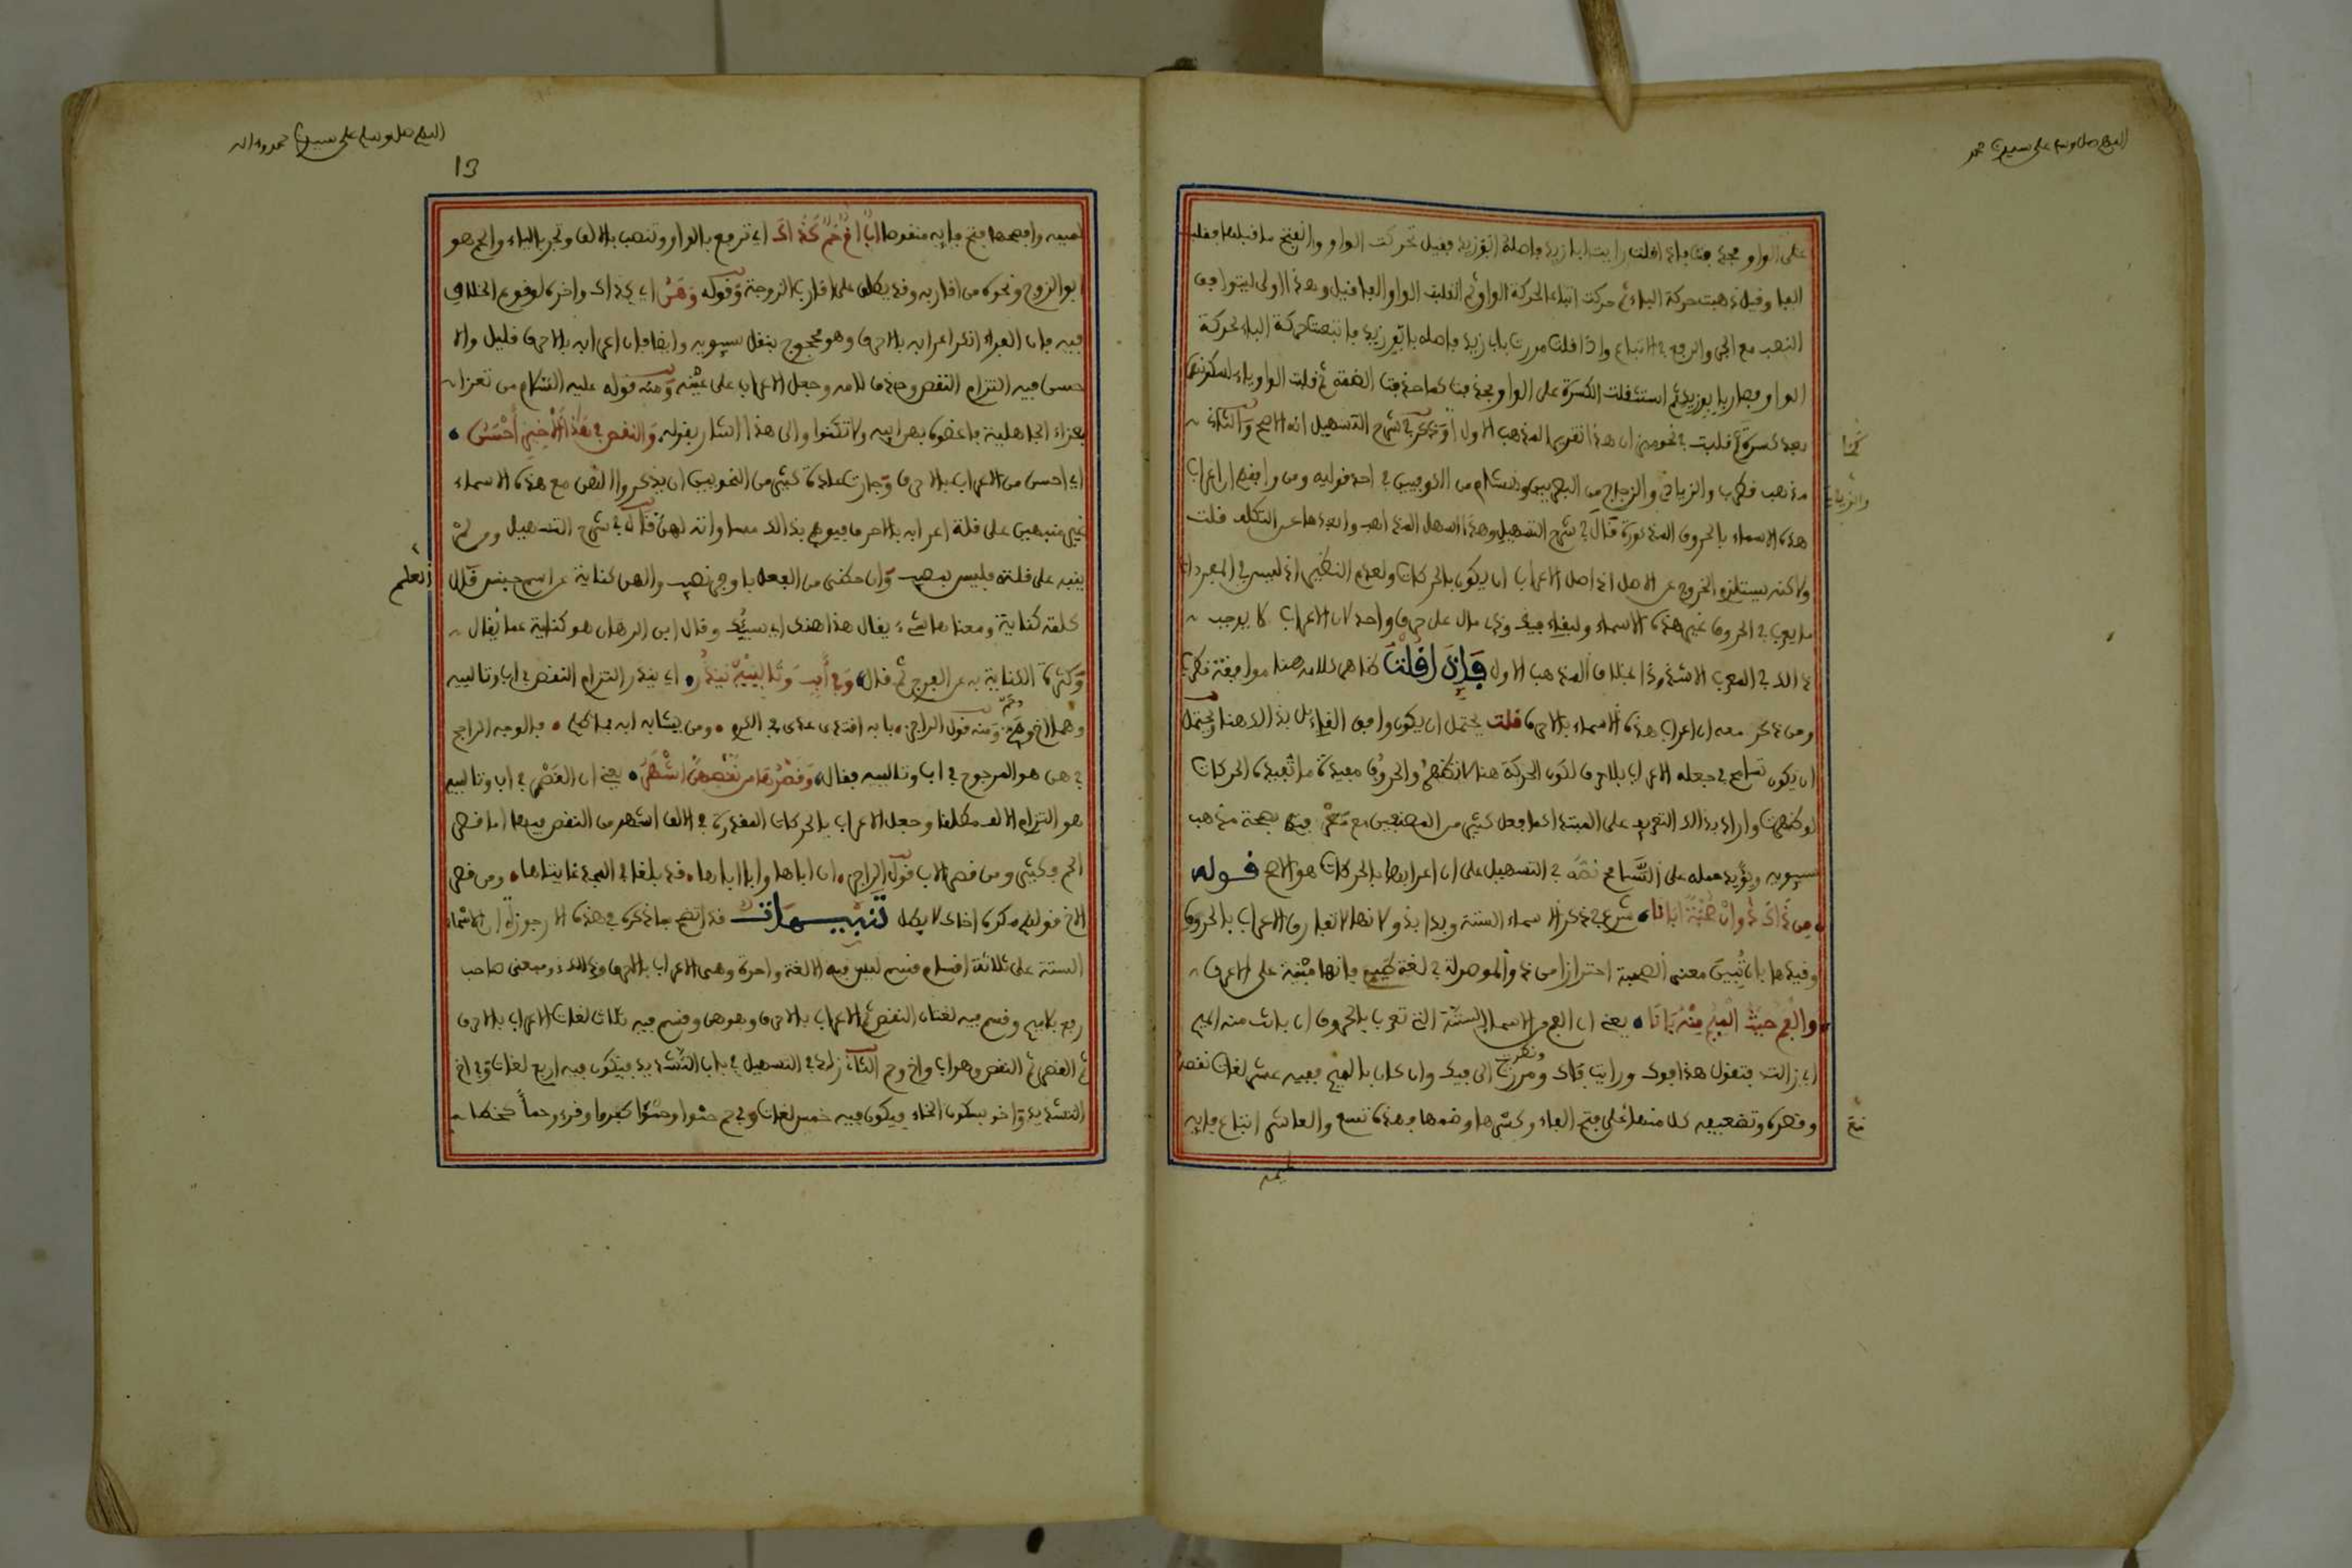 اللهم صل وسلم على سيدنا محمد
على الواو فحذفت فاذا قلت رايت ابا زيد فاصله ابو زيد فقيل تحركت الواو وانفتح ما قبلها فقلبت
الفا وقيل ذهبت حركة الباء ثم حركت اتباعا لحركة الواو ثم انقلبت الواو الفا قيل وهذا اولى ليتوافق
النصب مع الجر والرفع في الاتباع واذا قلت مررت بابي زيد فاصله بابو زيد فاتبعت حركة الباء لحركة
الواو فصار بابو زيد ثم استثقلت الكسرة على الواو فحذفت كما حذفت الضمة ثم قلبت الواو ياء لسكونها
بعد كسرة كما قلبت في نحو ميزان هذا تقرير المذهب الاول وذكر في شرح التسهيل انه الاصح والثاني
مذهب قطرب والزيادي والزجاج من البصريين وهشام من الكوفيين في احد قوليه ومن وافقهم ان اعراب
هذه الاسماء بالحروف المذكورة قال في شرح التسهيل وهذا اسهل المذاهب وابعدها عن التكلف قلت
ولاكنه يستلزم الخروج عن الاصل اذ اصل الاعراب ان يكون بالحركات ولعدم النظير اذ ليس في المفردات
ما يعرب في الحروف غير هذه الاسماء ولبقاء فيك وذي مال على حرف واحد لان الاعراب لا يوجب
ذالك في المعرب الا شذوذا بخلاف المذهب الاول فإن قلت ظاهر كلامه هنا موافقة قطرب
ومن ذكر معه ان اعراب هذه الاسماء بالاحرف قلت يحتمل ان يكون وافق القائل بذالك هنا ويحتمل
ان يكون تسامح في جعله الاعراب بالاحرف لكون الحركة هنا لا تظهر والحروف مفيدة ما تفيده الحركات
لو ظهرت واراد بذالك التقريب على المبتدا كما فعل كثير من المصنفين مع
سيبويه ويؤيد حمله على التسامح نصه في التسهيل على ان اعرابها بالحركات هو الاصح قوله
من ذاك ذو ان صحبة ابانا شرع في ذكر الاسماء الستة وبدا بذو لانها لا تفارق الاعراب بالحروف
وقيدها بان تبين معنى الصحبة احترازا من ذو الموصولة في لغة طيء فانها مبنية على الاعرف
والفم حيث الميم منه بانا يعني ان الفم من الاسماء الستة التي تعرب بالحروف ان بانت منه الميم
اي زالت فتقول هذا فوك ورايت فاك ونظرت الى فيك وان كان بالميم ففيه عشر لغات نقصه
وقصره وتضعيفه كلا منها على فتح الفاء وكسرها وضمها فهذه تسع والعاشر اتباع فايه
اللهم صل وسلم على سيدنا محمد وءاله
13
لميمه وافصحها فتح فايه منقوصا أب أخ حم كذاك اي ترفع بالواو وتنصب بالالف وتجر بالياء والحم هو
ابو الزوج ونحوه من اقاربه وقد يطلق على اقارب الزوجة وقوله وهن اي كذاك واخره لوقوع الخلاف
فيه فان الفراء انكر اعرابه بالاحرف وهو محجوج بنقل سيبويه وايضا فان اعرابه بالاحرف قليل والا
حسن فيه التزام النقص وحذف لامه وجعل الاعراب على عينه ومنه قوله عليه السلام من تعزى
بعزاء الجاهلية فاعضوه بهن ابيه ولا تكنوا والى هذا اشار بقوله والنقص في هذا الأخير أحسن
اي احسن من الاعراب بالاحرف وجرت عادة كثير من النحويين ان يذكروا الهن مع هذه الاسماء
غير منبهين على قلة اعرابه بالاحرف فيوهم بذالك مساواته لهن قال في شرح التسهيل ومن لم
ينبه على قلته فليس بمصيب وان حظي من الفضل باوفر نصيب والهن كناية عن اسم جنس قال
كلمة كناية ومعناها شيء يقال هذا هنك اي شيئك وقال ابن الدهان هو كناية عما يقال
وكثرة الكناية به عن الفرج ثم قال وفي أب وتالييه يندر اي يندر التزام النقص في اب وتالييه
وهما اخ وحم ومنه قول الراجز بابه اقتدى عدي في الكرم ومن يشابه ابه فما ظلم فالوجه الراجح
في هن هو المرجوح في اب وتالييه فقال وقصرها من نقصهن أشهر يعني ان القصر في اب وتالييه
هو التزام الالف مطلقا وجعل الاعراب بالحركات المقدرة في الالف اشهر من النقص فيها اما قصر
الحم فكثير ومن قصر الاب قول الراجز ان اباها وابا اباها قد بلغا في المجد غايتاها ومن قصر
الاخ قولهم مكره اخاك لا بطل تنبيهات قد اتضح بما ذكره في هذه الارجوزة ان الاسماء
الستة على ثلاثة اقسام قسم ليس فيه الا لغة واحدة وهي الاعراب بالاحرف وذالك ذو بمعنى صاحب
وفم بلا ميم وقسم فيه لغتان النقص ثم الاعراب بالاحرف وهو هن وقسم فيه ثلاث لغات الاعراب بالاحرف
ثم القصر ثم النقص وهو اب واخ وحم الثاني زاد في التسهيل في باب التشديد فيكون فيه اربع لغات وفي اخ
التشديد واخو بسكون الخاء فيكون فيه خمس لغات وفي حم حموا وحمؤا كقرو وقرء وحما كخطا